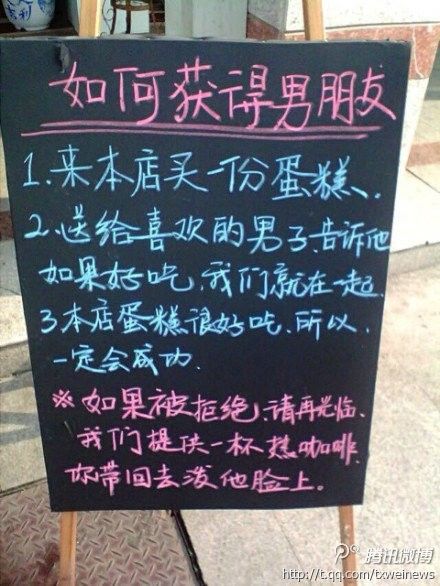 如何获得男朋友
1.来本店买一份蛋糕.
2.送给喜欢的男子,告诉他
如果好吃,我们就在一起.
3.本店蛋糕很好吃.所以,
一定会成功.
※如果被拒绝,请再光临.
我们提供一杯热咖啡.
你带回去泼他脸上。
腾讯微博
http://t.qq.com/txweinews